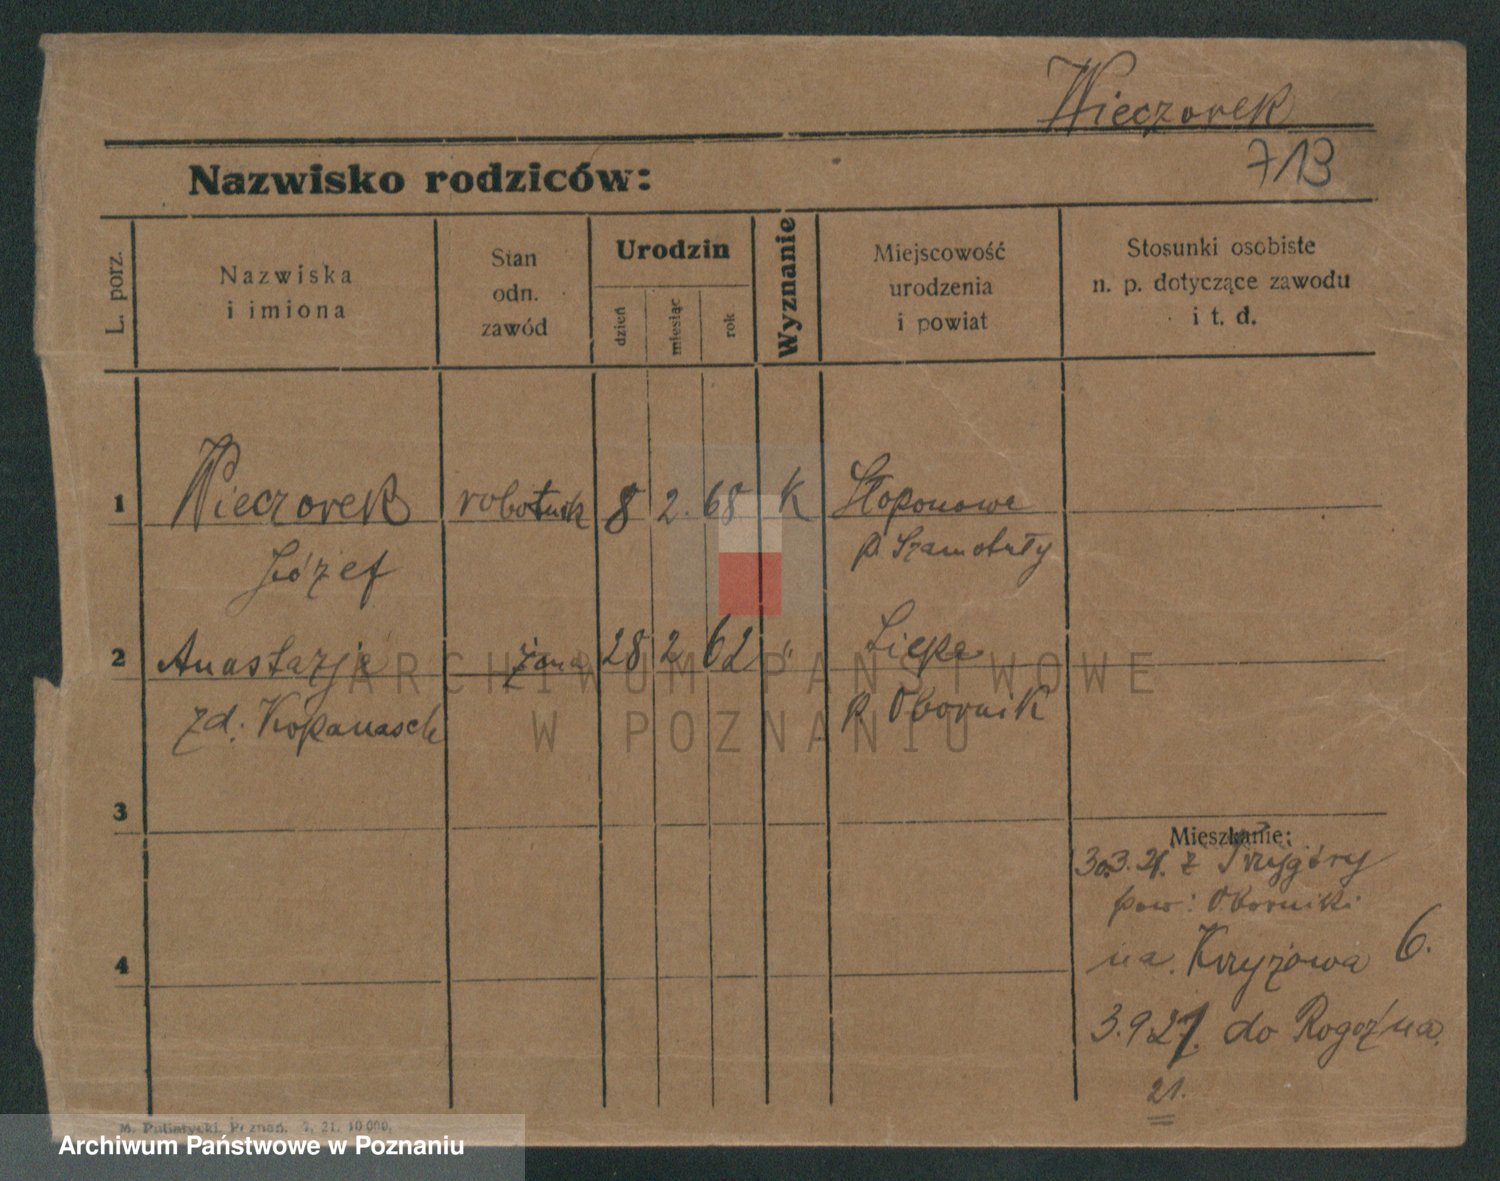 Wieczorek
713
Nazwisko rodziców:
L. porz.
Nazwiska
i imiona
Stan
odn.
zawód
Urodzin
dzień
miesiąc
rok
Wyznanie
Miejscowość
urodzenia
i powiat
Stosunki osobiste
n. p. dotyczące zawodu
i t. d.
1 Wieczorek robotnik 8 2. 68 K Słoponowe
Józef p. Szamotuły
2 Anastazja żona 28 2 62 " Lipka
zd. Kopanasch p. Obornik
3
Mieszkanie:
30.3.21. z Trzygóry
pow: Oborniki
na. Krzyżowa 6.
4
3.9.21. do Rogoźna.
21.
M. Putiatycki, Poznań. 7. 21. 10 000.
ARCHIWUM PAŃSTWOWE
W POZNANIU
Archiwum Państwowe w Poznaniu